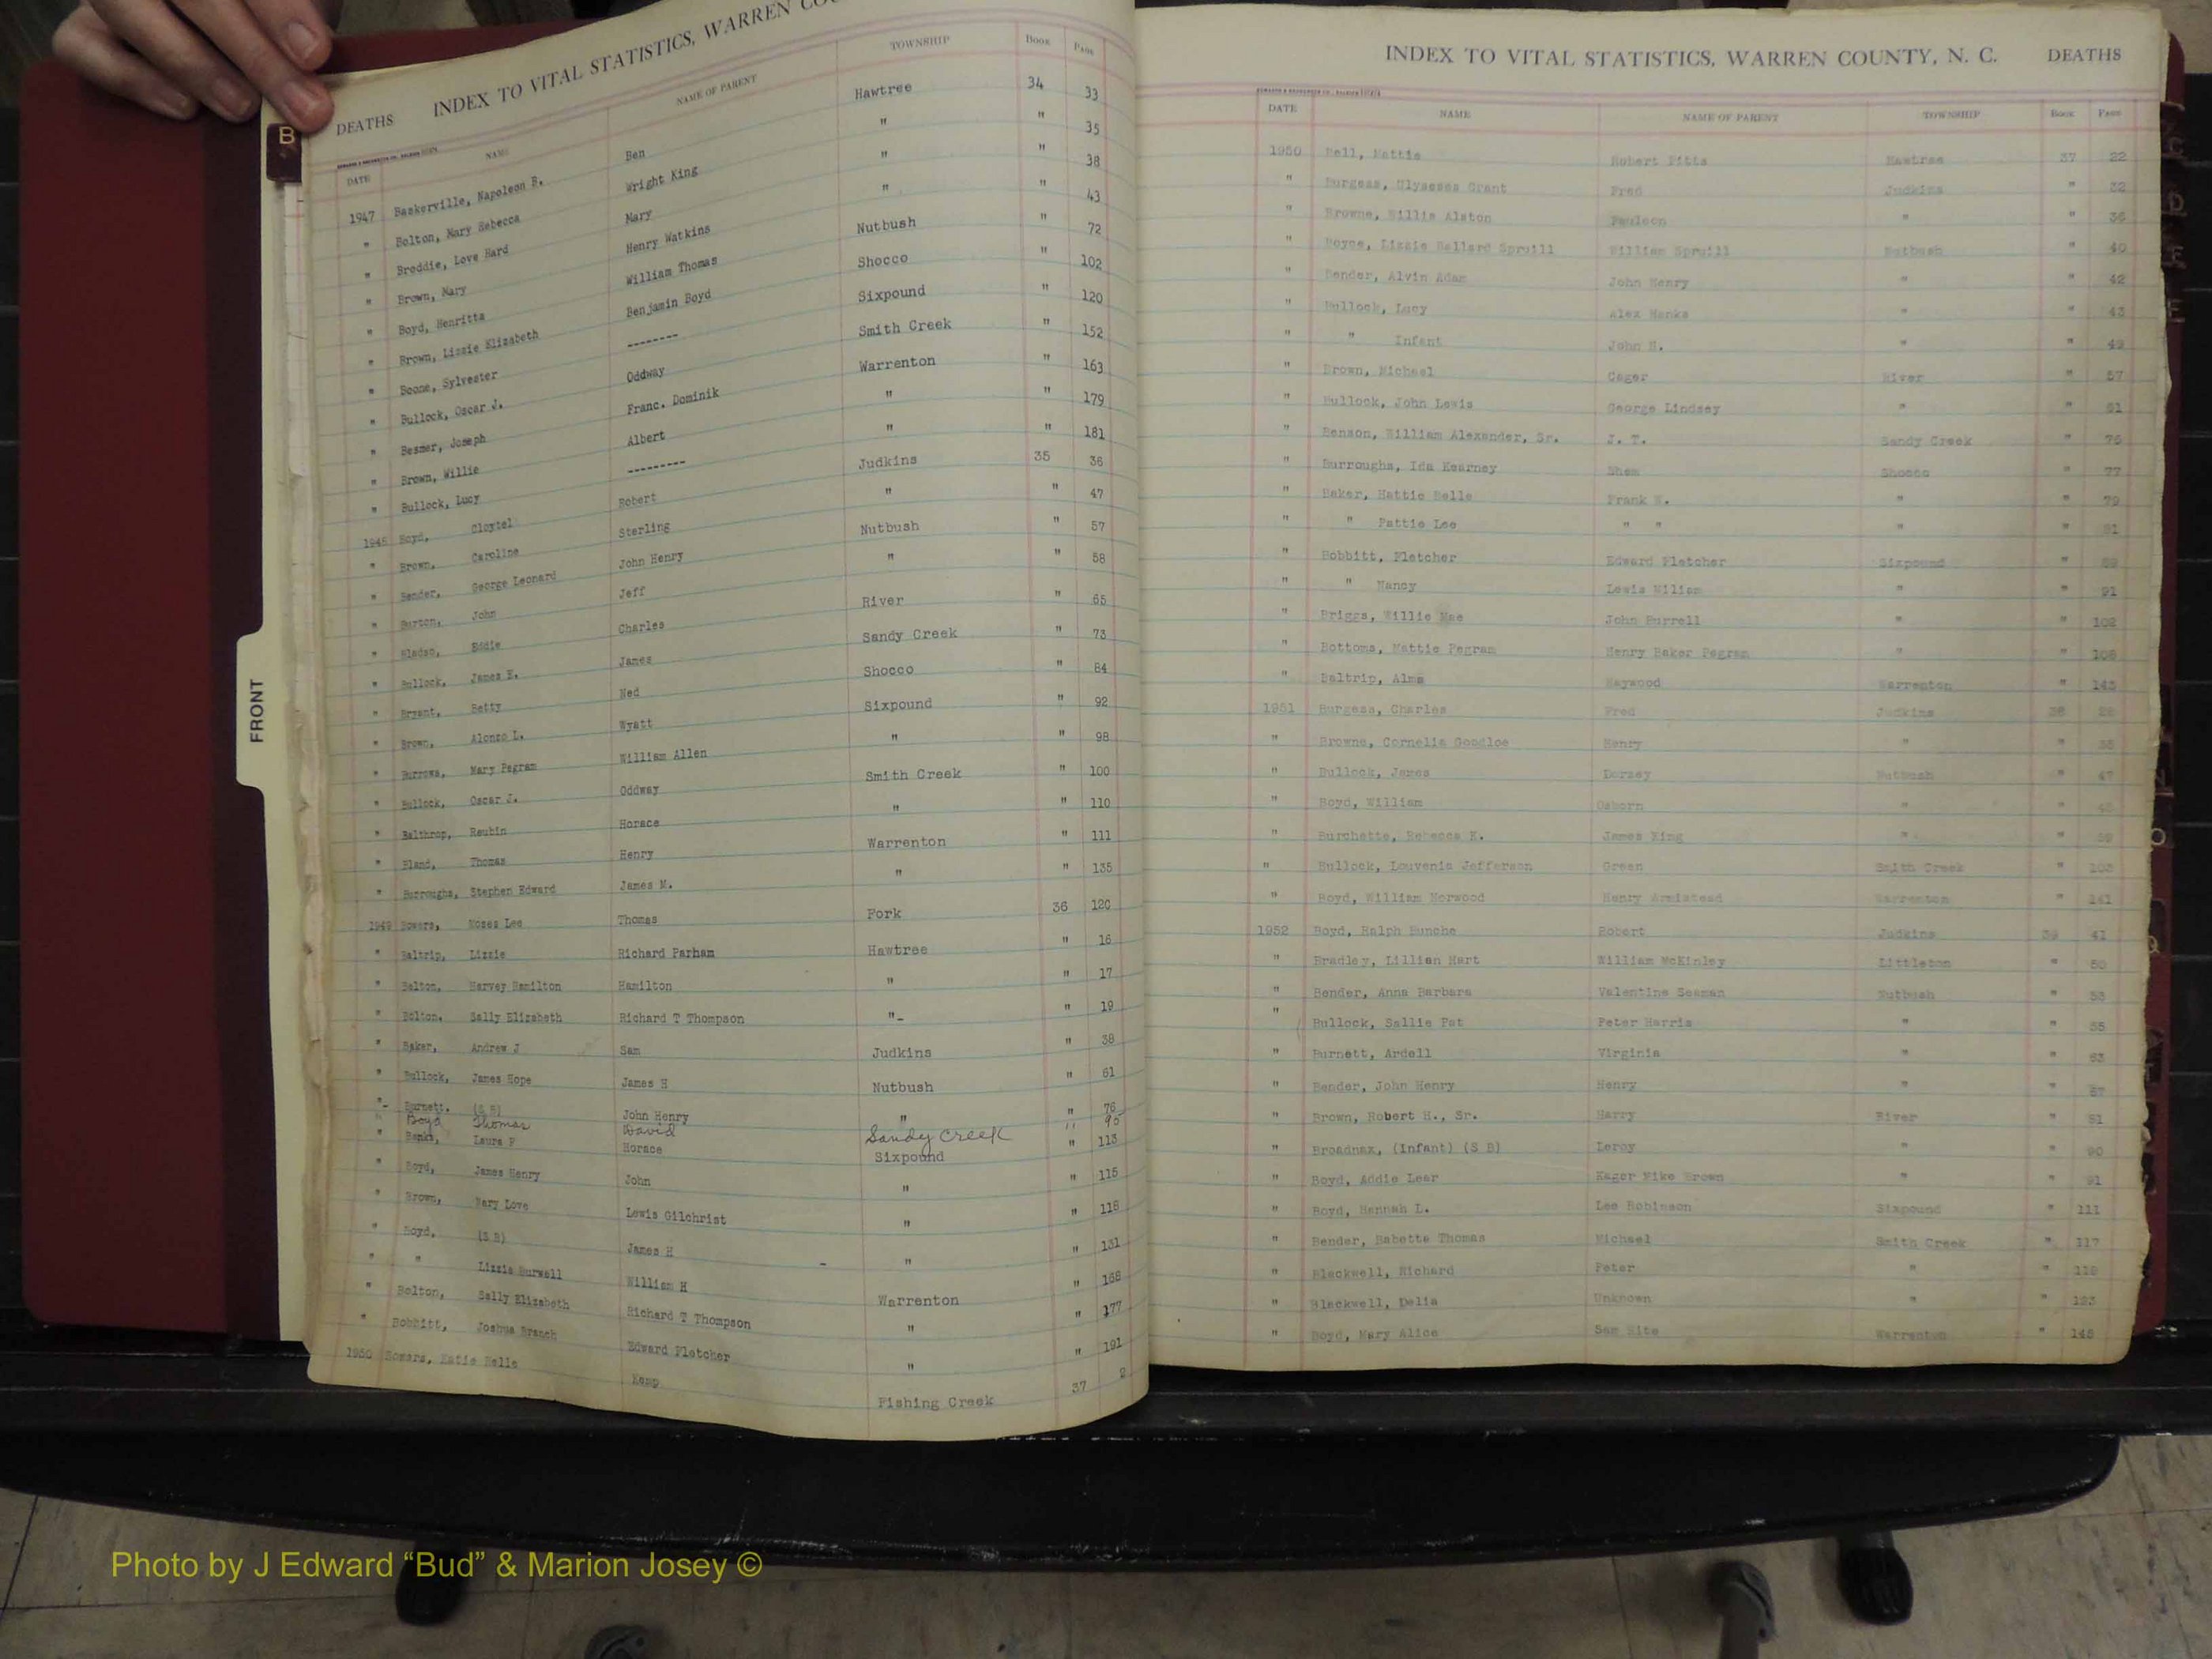 DEATHS INDEX TO VITAL STATISTICS, WARREN COU
DATE NAME NAME OF PARENT TOWNSHIP Book Page
1947 Baskerville, Napoleon B. Ben Hawtree 34 33
" Bolton, Mary Rebecca Wright King " " 35
" Broddie, Love Hard Mary " " 38
" Brown, Mary Henry Watkins " " 43
" Boyd, Henritta William Thomas Nutbush " 72
" Brown, Lizzie Elizabeth Benjamin Boyd Shocco " 102
" Boone, Sylvester -------- Sixpound " 120
" Bullock, Oscar J. Oddway Smith Creek " 152
" Besmer, Joseph Franc. Dominik Warrenton " 163
" Brown, Willie Albert " " 179
" Bullock, Lucy --------- " " 181
Boyd, Cloytel Robert Judkins 35 36
" Brown, Caroline Sterling " " 47
" Bender, George Leonard John Henry Nutbush " 57
" Burton, John Jeff " " 58
" Bledso, Eddie Charles River " 65
" Bullock, James E. James Sandy Creek " 73
" Bryant, Betty Ned Shocco " 84
" Brown, Alonzo L. Wyatt Sixpound " 92
" Burrows, Mary Pegram William Allen " " 98
" Bullock, Oscar J. Oddway Smith Creek " 100
" Balthrop, Reubin Horace " " 110
" Bland, Thomas Henry Warrenton " 111
" Burroughs, Stephen Edward James M. " " 135
1949 Bowers, Moses Lee Thomas Fork 36 120
" Baltrip, Lizzie Richard Parham Hawtree " 16
" Bolton, Harvey Hamilton Hamilton " " 17
" Bolton, Sally Elizabeth Richard T Thompson "- " 19
" Baker, Andrew J Sam Judkins " 38
" Bullock, James Hope James H Nutbush " 61
"- Burnett, (S B) John Henry " " 76
" Boyd Thomas David Sandy Creek " 95
" Banks, Laura P Horace Sixpound " 113
" Boyd, James Henry John " " 115
" Brown, Mary Love Lewis Gilchrist " " 118
" Boyd, (S B) James H - " " 131
" " Lizzie Burwell William H Warrenton " 168
" Bolton, Sally Elizabeth Richard T Thompson " " 177
" Bobbitt, Joshua Branch Edward Fletcher " " 191
1950 Bowers, Katie Belle Kemp Fishing Creek 37 2
INDEX TO VITAL STATISTICS, WARREN COUNTY, N. C. DEATHS
DATE NAME NAME OF PARENT TOWNSHIP Book Page
1950 Bell, Mattie Robert Pitts Hawtree 37 22
" Burgess, Ulyseses Grant Fred Judkins " 32
" Browne, Willis Alston Pauleon " " 36
" Boyce, Lizzie Ballard Spruill William Spruill Nutbush " 40
" Bender, Alvin Adam John Henry " " 42
" Bullock, Lucy Alex Hanks " " 43
" " Infant John H. " " 49
" Brown, Michael Cager River " 57
" Bullock, John Lewis George Lindsey " " 61
" Benson, William Alexander, Sr. J. T. Sandy Creek " 75
" Burroughs, Ida Kearney Shem Shocco " 77
" Baker, Hattie Belle Frank W. " " 79
" " Pattie Lee " " " " 81
" Bobbitt, Fletcher Edward Fletcher Sixpound " 89
" " Nancy Lewis " " 91
" Briggs, Willie Mae John Burrell " " 102
" Bottoms, Mattie Pegram Henry Baker Pegram " " 108
" Baltrip, Alma Haywood Warrenton " 143
1951 Burgess, Charles Fred Judkins 38
" Browne, Cornelia Goodloe Henry " "
" Bullock, James Dorsey Nutbush " 47
" Boyd, William Osborn " "
" Burchette, Rebecca K. James King " "
" Bullock, Louvenia Jefferson Green Smith Creek " 103
" Boyd, William Norwood Henry Armistead Warrenton " 141
1952 Boyd, Ralph Bunche Robert Judkins 39 41
" Bradley, Lillian Hart William McKinley Littleton " 50
" Bender, Anna Barbara Valentine Seaman Nutbush " 53
" Bullock, Sallie Pat Peter Harris " " 55
" Burnett, Ardell Virginia " " 63
" Bender, John Henry Henry " "
" Brown, Robert H., Sr. Harry River " 81
" Broadnax, (Infant) (S B) Leroy " " 90
" Boyd, Addie Lear Eager Pike Brown " " 91
" Boyd, Hannah L. Lee Robinson Sixpound " 111
" Bender, Babette Thomas Michael Smith Creek " 117
" Blackwell, Richard Peter " " 118
" Blackwell, Delia Unknown " " 123
" Boyd, Mary Alice Sam Hite Warrenton " 145
B
FRONT
Photo by J Edward “Bud” & Marion Josey ©